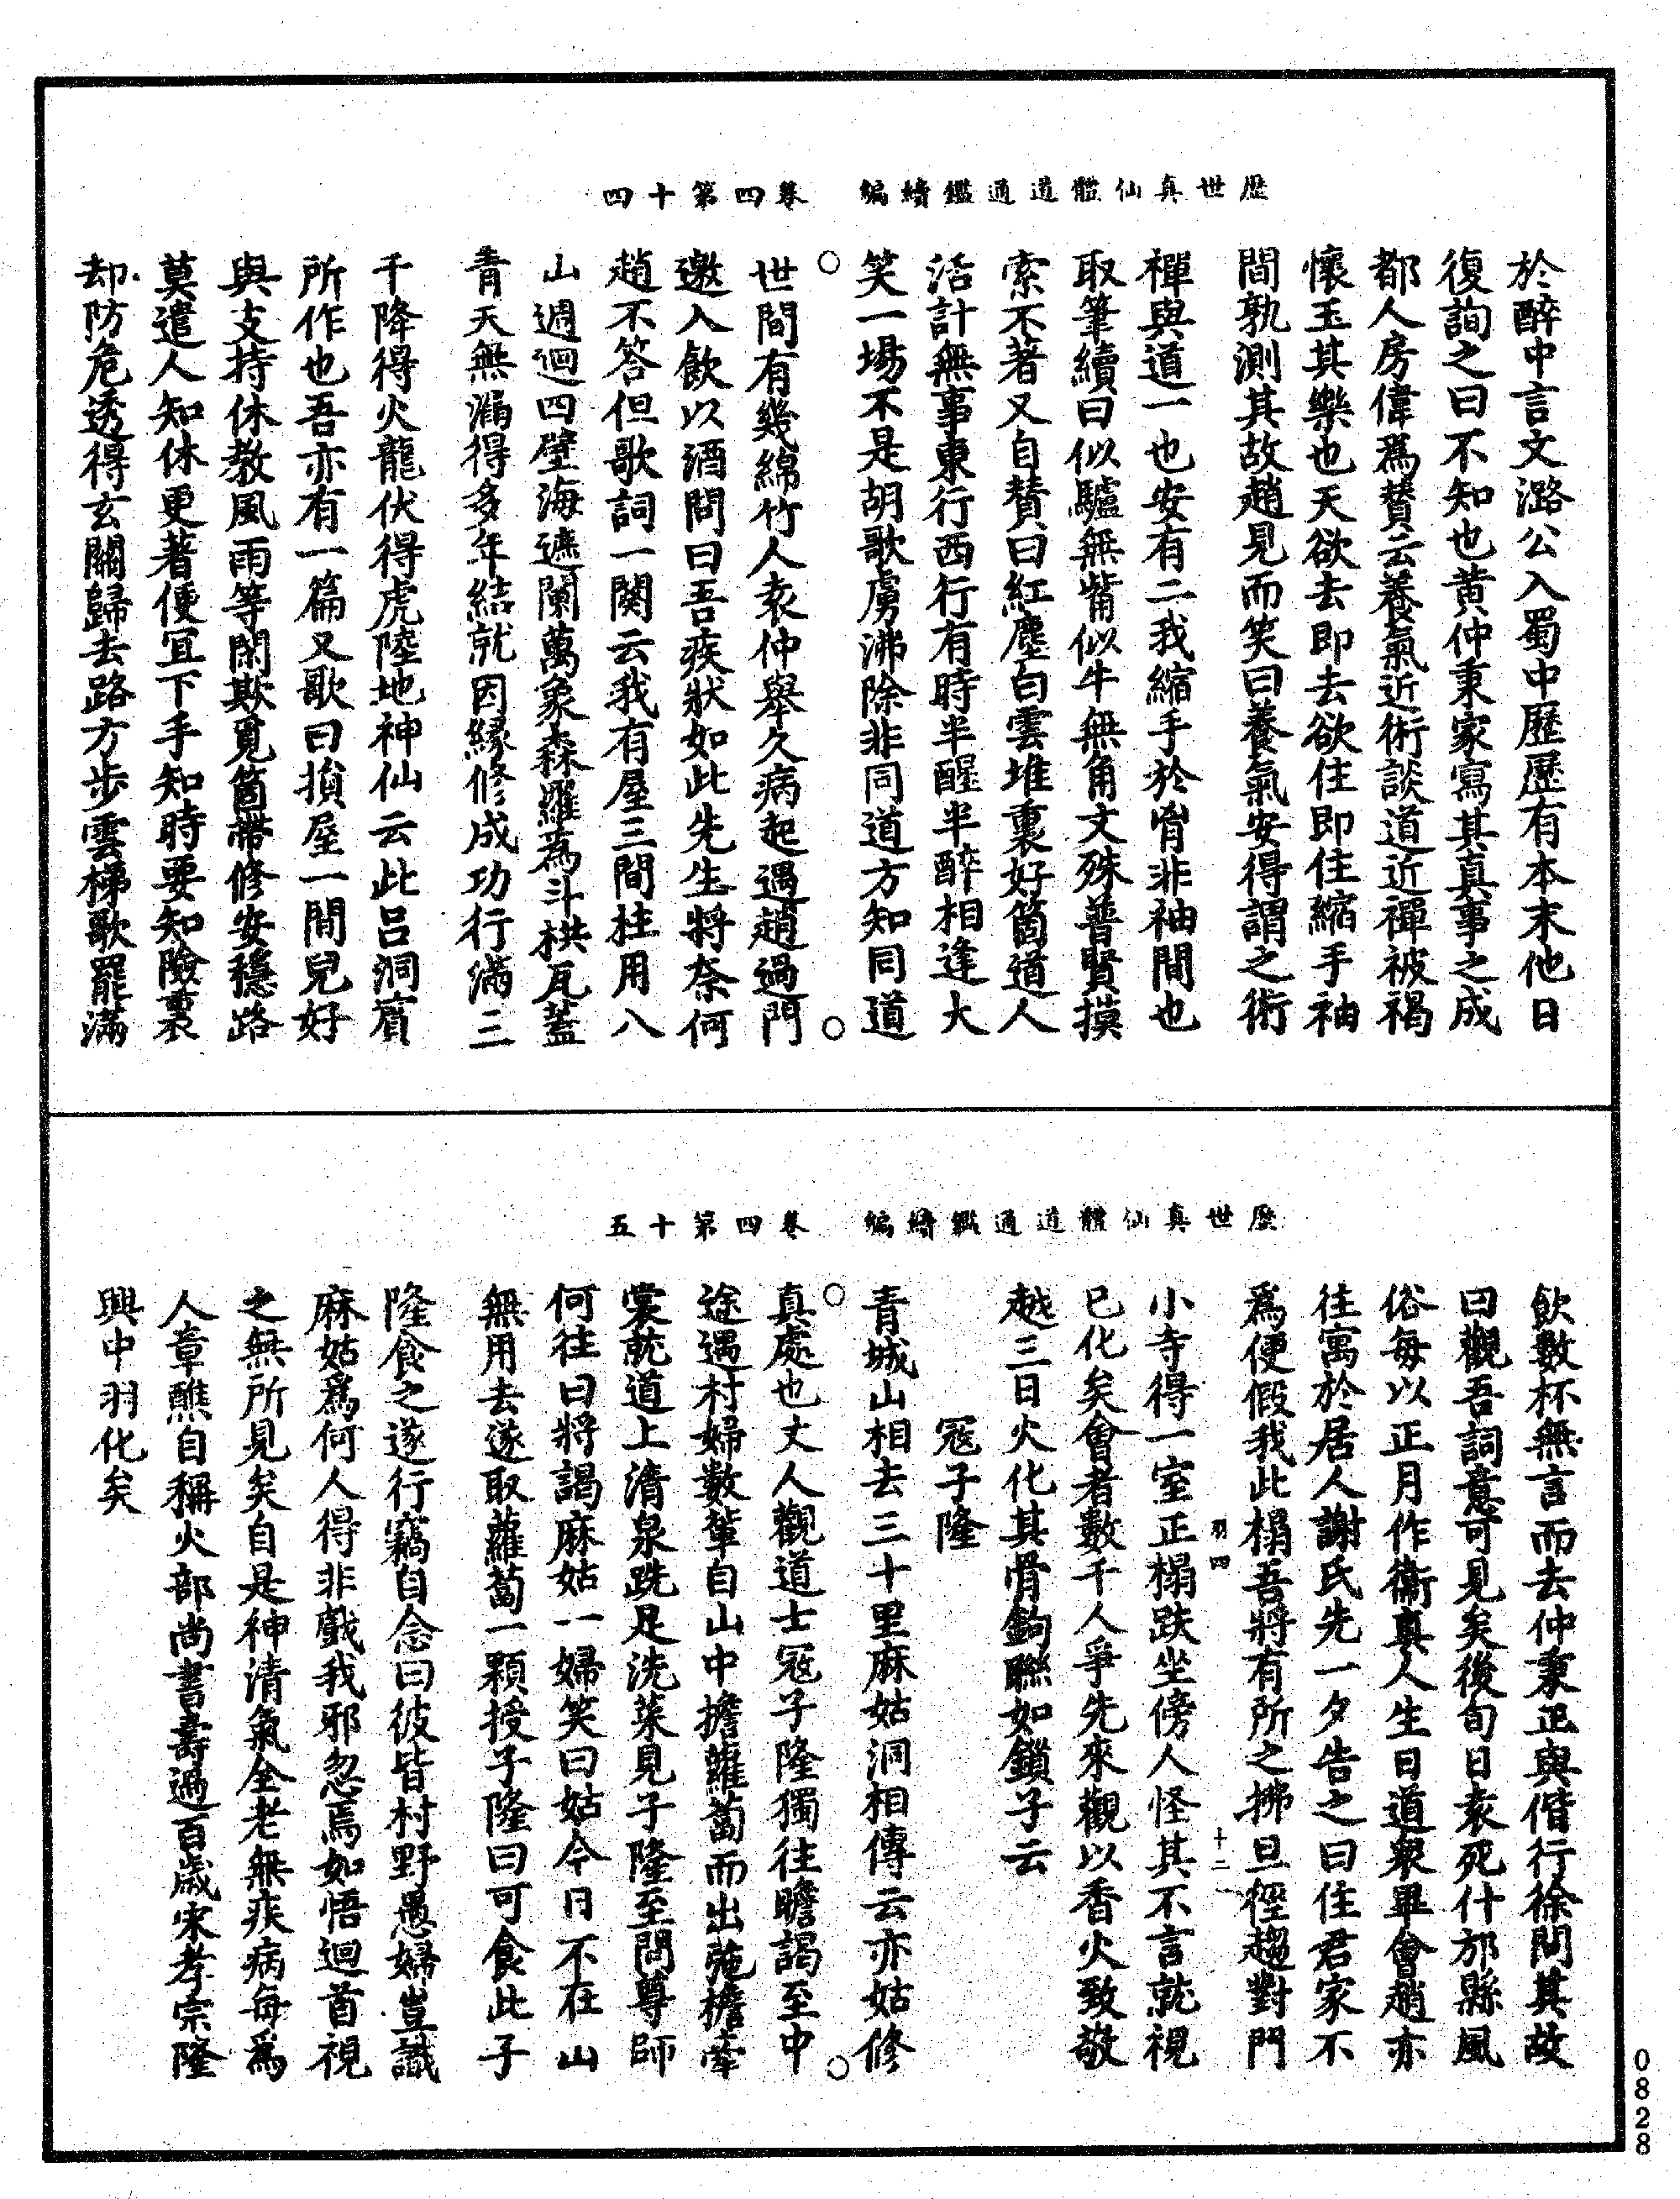 歷世真仙體道通鑑續編　卷四第十四
於醉中言文潞公入蜀中歷歷有本末他日
復詢之曰不知也黃仲秉家寫其真事之成
都人房偉爲贊云養氣近術談道近禪被褐
懷玉其樂也天欲去即去欲住即住縮手袖
間孰測其故趙見而笑曰養氣安得謂之術
禪與道一也安有二我縮手於胷非袖間也
取筆續曰似驢無觜似牛無角文殊普賢摸
索不著又自贊曰紅塵白雲堆裏好箇道人
活計無事東行西行有時半醒半醉相逢大
笑一場不是胡歌虜沸除非同道方知同道
世間有幾綿竹人袁仲舉久病起遇趙過門
邀入飲以酒問曰吾疾狀如此先生將奈何
趙不答但歌詞一闋云我有屋三間柱用八
山週迴四壁海遮闌萬象森羅為斗栱瓦蓋
青天無漏得多年結就因緣修成功行滿三
千降得火龍伏得虎陸地神仙云此呂洞賔
所作也吾亦有一篇又歌曰損屋一間兒好
與支持休教風雨等閑欺覓箇帶修安穩路
莫遣人知休更著便宜下手知時要知險裏
却防危透得玄關歸去路方步雲梯歌罷滿
歷世真仙體道通鑑續編　卷四第十五
飲數杯無言而去仲秉正與偕行徐問其故
曰觀吾詞意可見矣後旬日袁死什邡縣風
俗每以正月作衞真人生日道衆畢會趙亦
往寓於居人謝氏先一夕告之曰住君家不
爲便假我此榻吾將有所之拂旦徑趨對門
羽四　十二
小寺得一室正榻趺坐傍人怪其不言就視
已化矣會者數千人爭先來觀以香火致敬
越三日火化其骨鉤聯如鎖子云
寇子隆
青城山相去三十里麻姑洞相傳云亦姑修
真處也丈人觀道士寇子隆獨往瞻謁至中
途遇村婦數輩自山中擔蘿蔔而出弛擔牽
裳就道上清泉跣足洗菜見子隆至問尊師
何往曰將謁麻姑一婦笑曰姑今日不在山
無用去遂取蘿蔔一顆授子隆曰可食此子
隆食之遂行竊自念曰彼皆村野愚婦豈識
麻姑爲何人得非戲我邪忽焉如悟迴首視
之無所見矣自是神清氣全老無疾病每爲
人章醮自稱火部尚書壽過百歲宋孝宗隆
興中羽化矣
0828